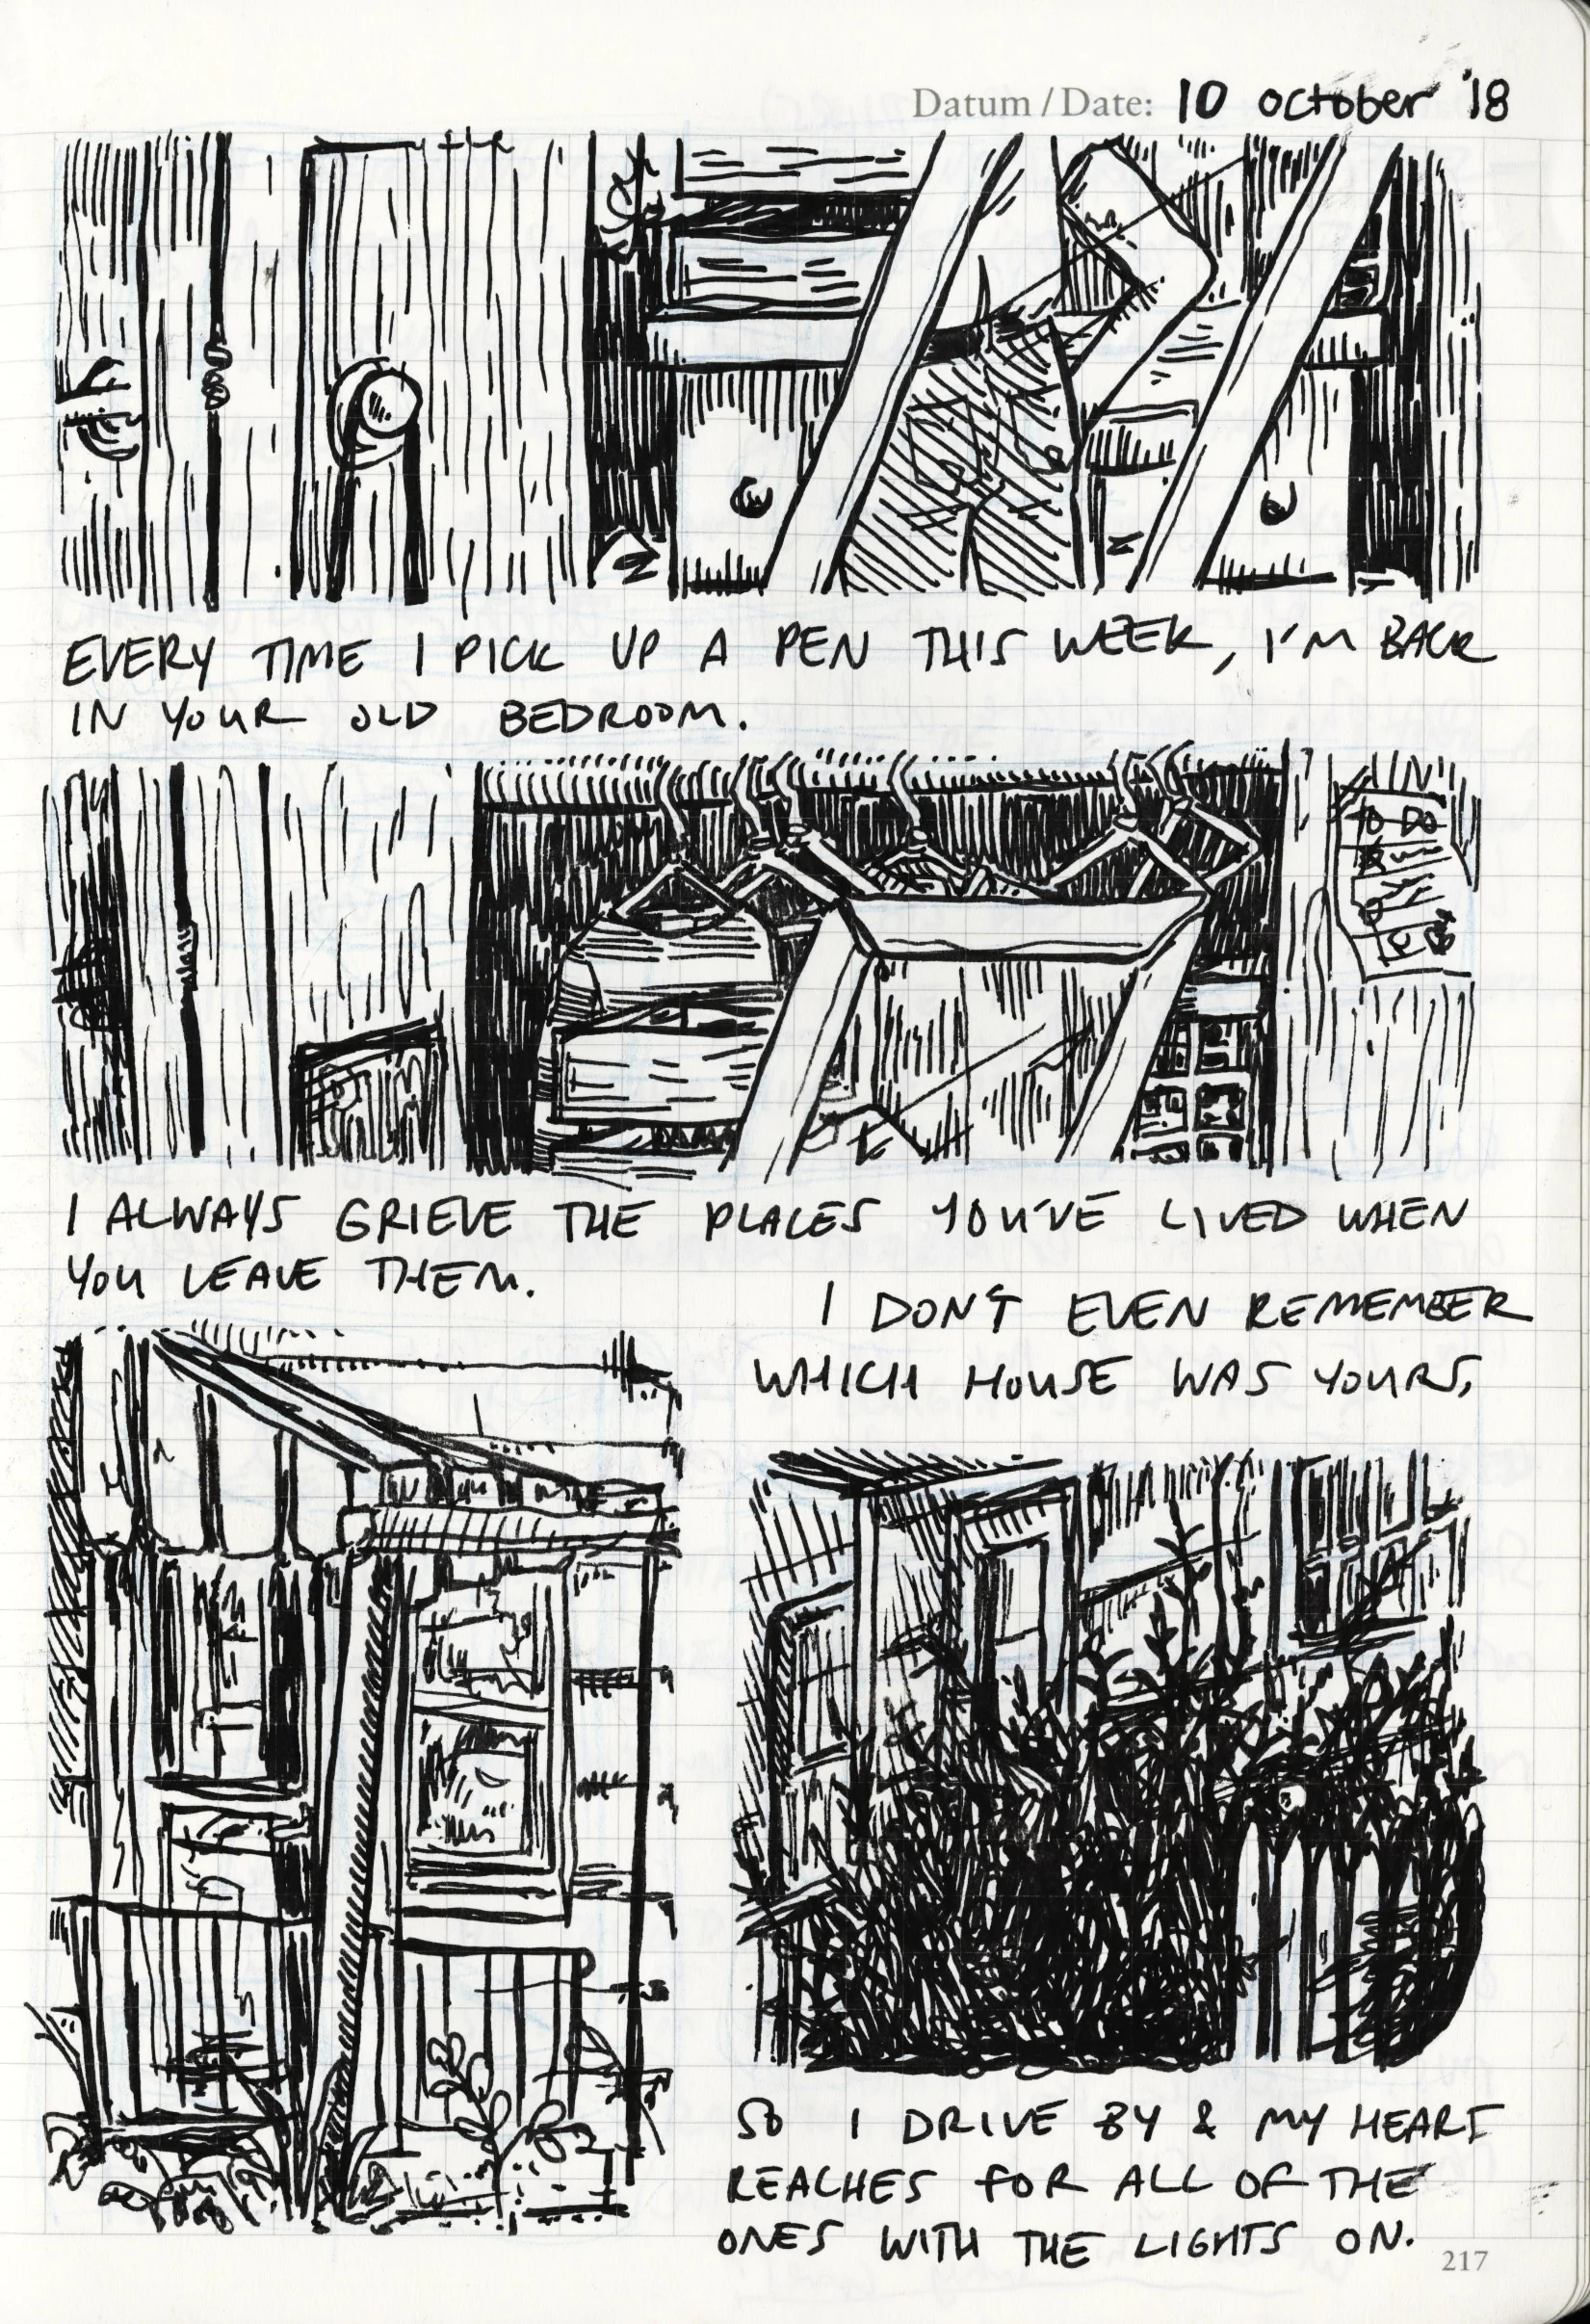 Datum / Date: 10 october '18
EVERY TIME I PICK UP A PEN THIS WEEK, I'M BACK
IN YOUR OLD BEDROOM.
TO DO
I ALWAYS GRIEVE THE PLACES YOU'VE LIVED WHEN
YOU LEAVE THEM.
I DON'T EVEN REMEMBER
WHICH HOUSE WAS YOURS,
SO I DRIVE BY & MY HEART
REACHES FOR ALL OF THE
ONES WITH THE LIGHTS ON.
217